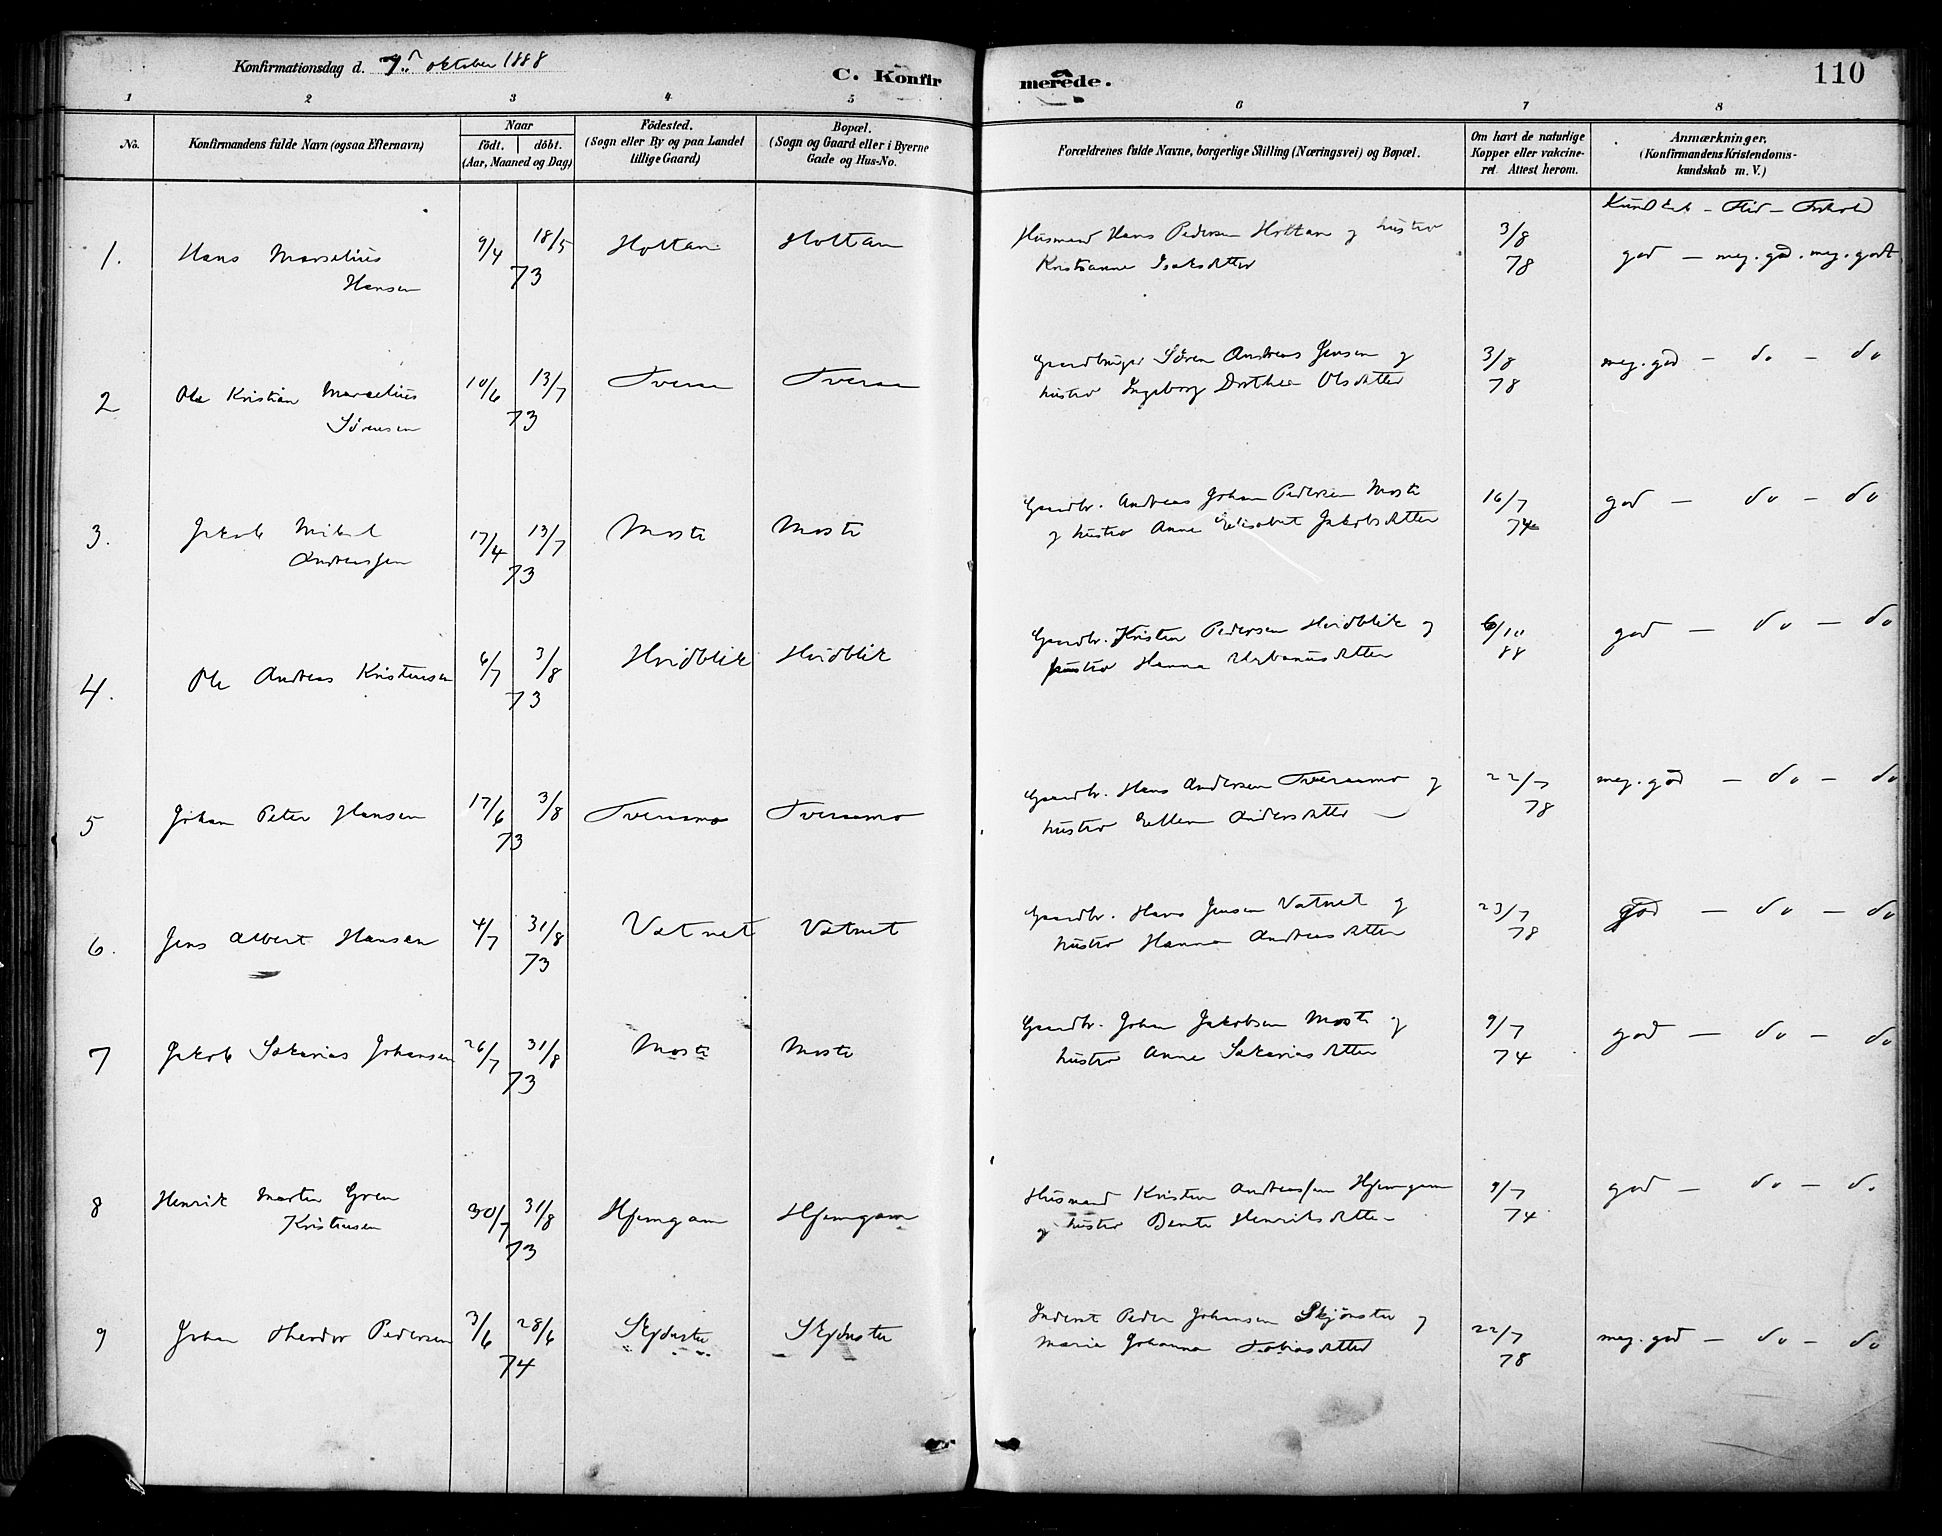 Konfirmationsdag d. 7de oktober 1888
C. Konfirmerede.
110
1 2 3 4 5 6 7 8
No.
Konfirmandens fulde Navn (ogsaa Efternavn)
Naar
født. døbt.
(Aar, Maaned og Dag)
Fødested.
(Sogn eller By og paa Landet
tillige Gaard)
Bopæl.
(Sogn og Gaard eller i Byerne
Gade og Hus-No.
Forældrenes fulde Navne, borgerlige Stilling (Næringsvei) og Bopæl.
Om havt de naturlige
Kopper eller vakcine-
ret. Attest herom.
Anmærkninger.
(Konfirmandens Kristendoms-
kundskab m. V.)
Kundskab – Flid – Forhold
1. Hans Marselius 9/4 18/5 Holtan Holtan Husmand Hans Pedersen Holtan og hustro 3/8 god – meg. god. meg. godt
Hansen 73 Kristianne Isaksdatter 78
2 Ole Kristian Marselius 10/6 13/7 Tveraa Tveraa Gaardbruger Søren Andreas Jensen og 3/8 meg. god – do – do
Sørensen 73 hustro Ingeborg Dorthea Olsdatter 78
3. Jakob Mikal 17/4 13/7 Moste Moste Gaardbr. Andreas Johan Pedersen Moste 16/7 god – do – do
Andreassen 73 og hustro Anne Elisabet Jakobsdatter 74
4. Ole Andreas Kristensen 6/7 3/8 Hvidblik Hvidblik Gaardbr. Kristen Pedersen Hvidblik og 6/10 god – do – do
73 hustro Hanna Urbanusdatter 88
5 Johan Peter Hansen 17/6 3/8 Tveraamo Tveraamo Gaardbr. Hans Andersen Tveraamo og 22/7 meg. god – do – do
73 hustro Ellen Andersdatter 78
6. Jens Albert Hansen 4/7 31/8 Vatnet Vatnet Gaardbr. Hans Jensen Vatnet og 23/7 god – do – do
73 hustro Hanna Andreasdatter 78
7 Jakob Sakarias Johansen 26/7 31/8 Moste Moste Gaardbr. Johan Jakobsen Moste og 9/7 god – do – do
73 hustro Anne Sakariasdatter 74
8 Henrik Martin Gren 30/7 31/8 Hjemgam Hjemgam Husmand Kristen Andreassen Hjemgam 9/7 god – do – do
Kristensen 73 og hustro Bente Henriksdatter 74
9 Johan Theodor Pedersen 3/6 28/6 Skjønste Skjønste Inderst Peder Johansen Skjønste og 22/7 meg. god – do – do
74 Marie Johanna Tobiasdatter 78